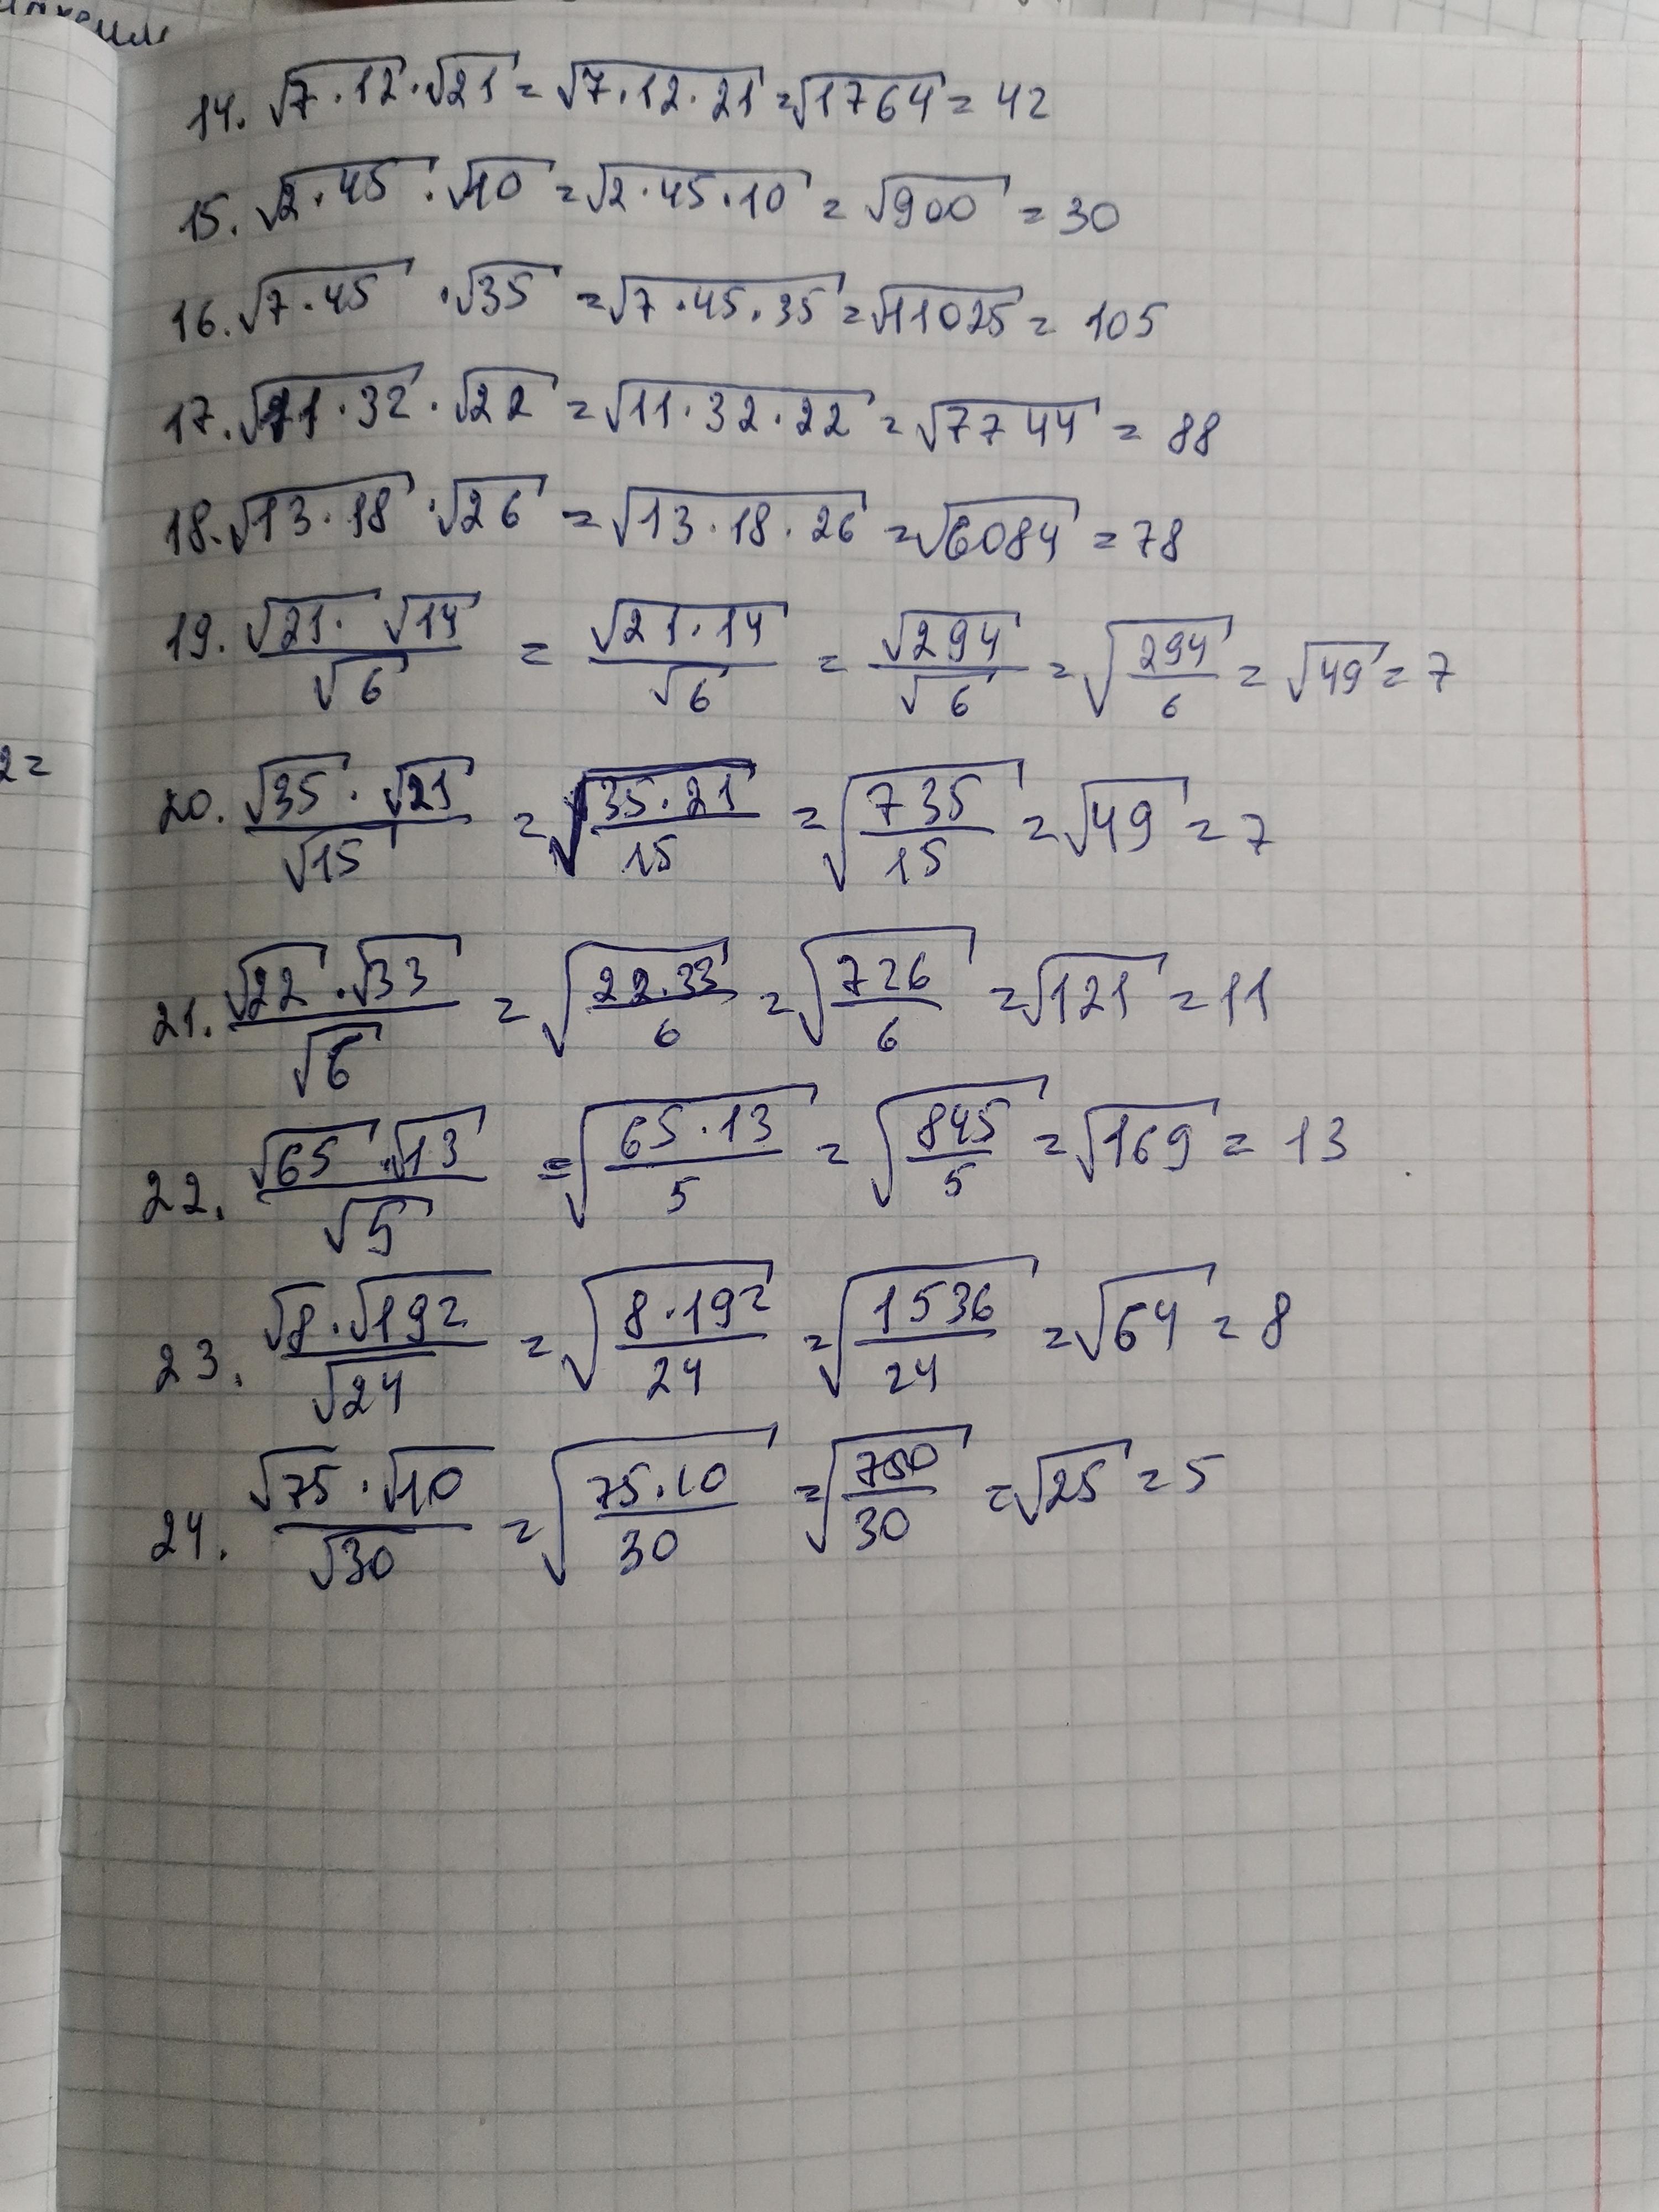 14. √7·12·√21 = √7·12·21 = √1764 = 42
15. √2·45·√10 = √2·45·10 = √900 = 30
16. √7·45·√35 = √7·45·35 = √11025 = 105
17. √11·32·√22 = √11·32·22 = √7744 = 88
18. √13·18·√26 = √13·18·26 = √6084 = 78
19. √21·√14/√6 = √21·14/√6 = √294/√6 = √294/6 = √49 = 7
2 =
20. √35·√21/√15 = √35·21/15 = √735/15 = √49 = 7
21. √22·√33/√6 = √22·33/6 = √726/6 = √121 = 11
22. √65·√13/√5 = √65·13/5 = √845/5 = √169 = 13
23. √8·√192/√24 = √8·192/24 = √1536/24 = √64 = 8
24. √75·√10/√30 = √75·10/30 = √750/30 = √25 = 5